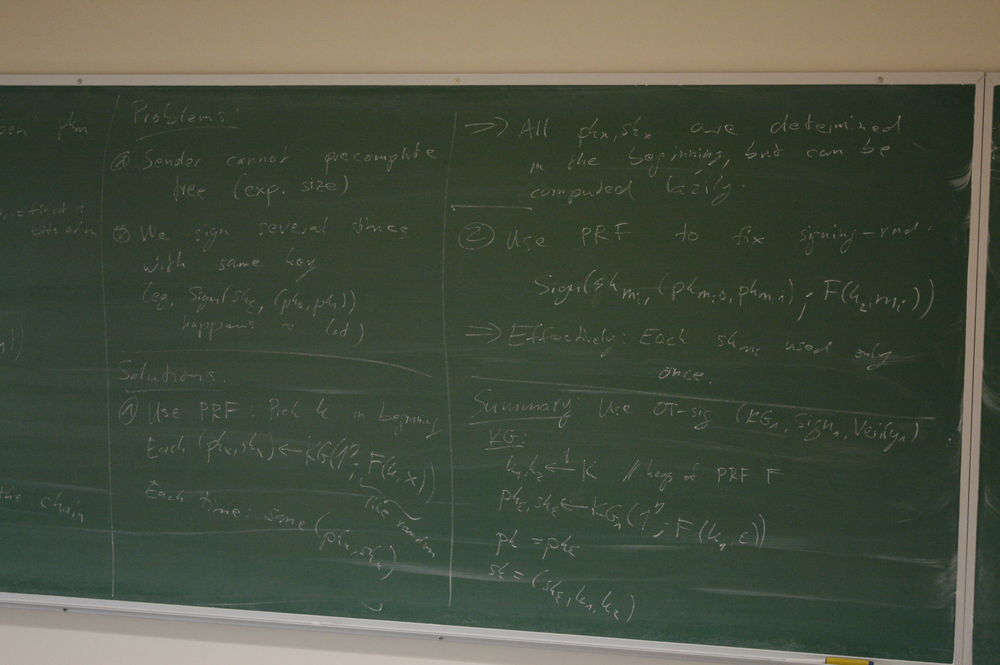 the chain
Problems:
① Sender cannot precompute
tree (exp. size)
② We sign several times
with same key
(eg, Sign(sk_ε, (pk_0, pk_1))
happens a lot)
Solutions:
① Use PRF: Pick k in beginning
Each (pk_x, sk_x) ← KG(1^η; F(k, x))
like random
Each time: same (pk_x, sk_x)
=> All pk_x, sk_x are determined
in the beginning, but can be
computed lazily.
② Use PRF to fix signing-rnd.
Sign(sk_{m_i}, (pk_{m_i0}, pk_{m_i1}); F(k_2, m_i))
=> Effectively: Each sk_{m_i} used only
once.
Summary: Use OT-sig (KG_1, Sign_1, Verify_1)
KG:
k_1, k_2 ←$ K // keys of PRF F
pk_ε, sk_ε ← KG_1(1^η; F(k_1, ε))
pk = pk_ε
sk = (sk_ε, k_1, k_2)